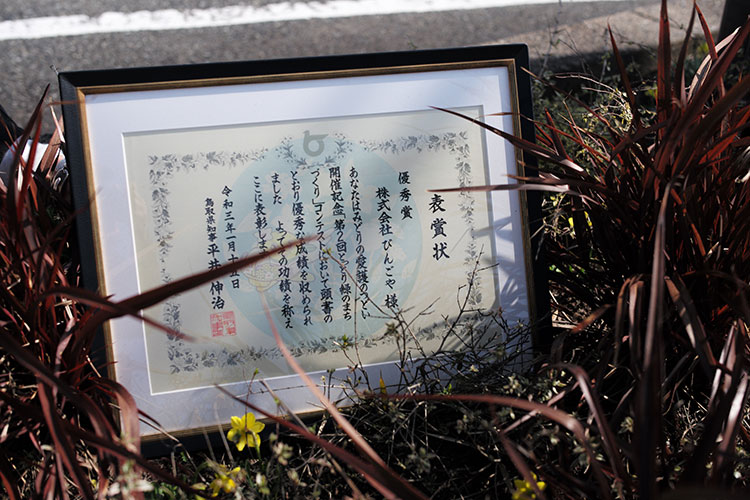 表賞状
優秀賞
株式会社 びんごや 様
あなたはみどりの愛護のつどい
開催記念 第2回とっとり緑のまち
づくりコンテストにおいて頭書の
とおり優秀な成績を収められ
ました よってその功績を称え
ここに表彰します
令和三年 月十五日
鳥取県知事 平井伸治